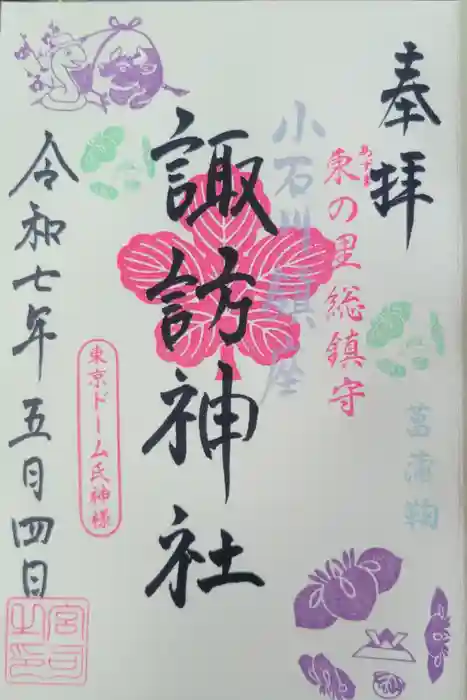 奉拝
菖蒲鞠
あずま
東の里総鎮守
小石川鎮座
諏訪神社
東京ドーム氏神様
令和七年五月四日
宮司之印